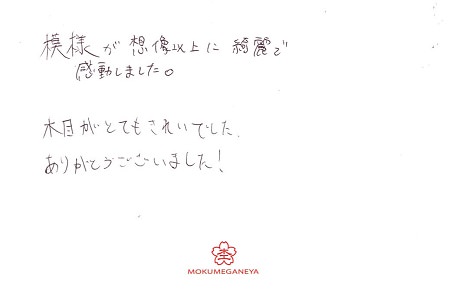 模様が想像以上に綺麗で
感動しました。
木目がとてもきれいでした.
ありがとうございました!
MOKUMEGANEYA